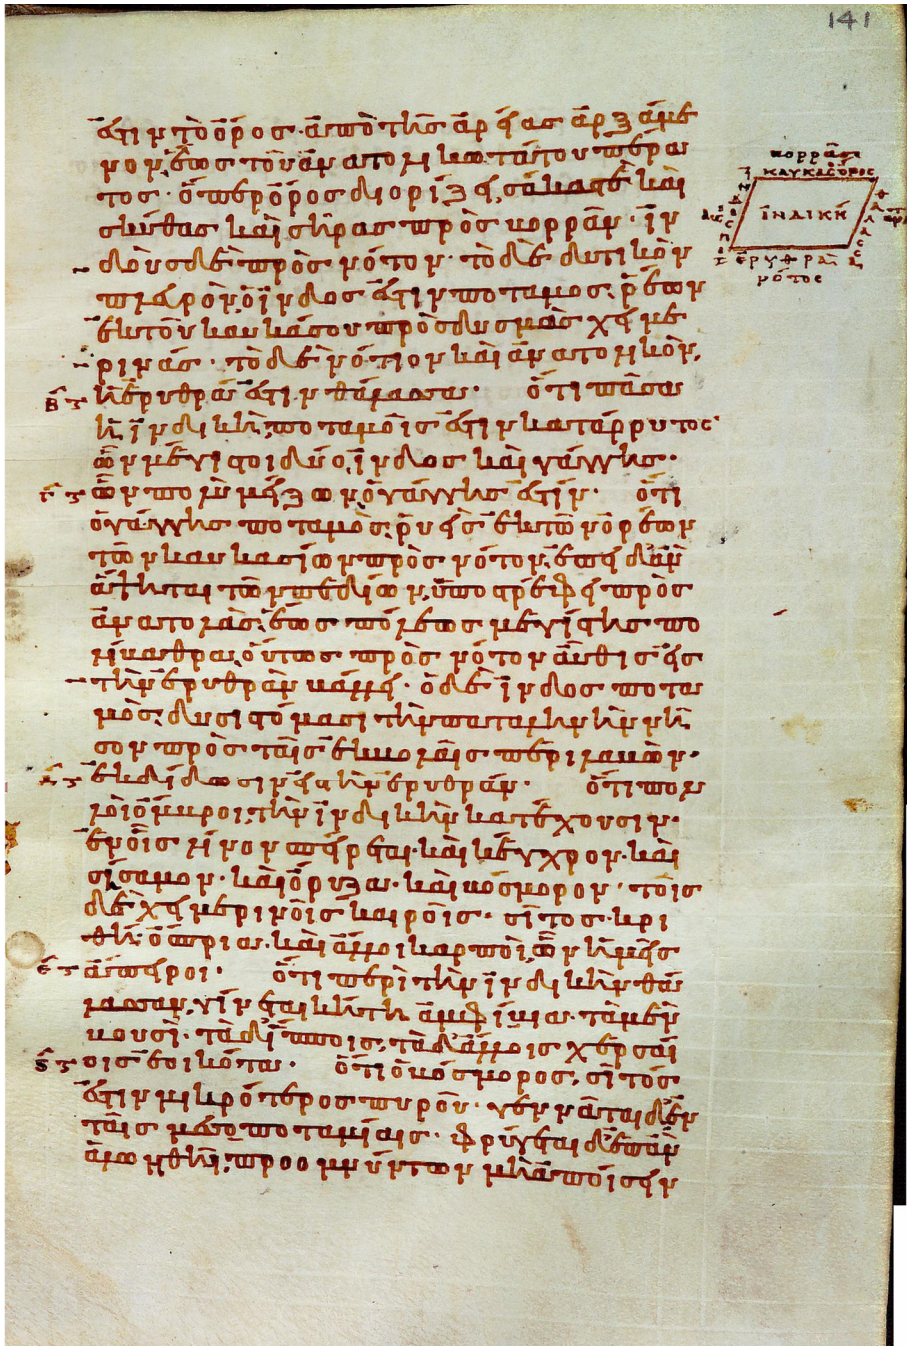 ἐστιν τὸ ὄρος· ἀπὸ τῆς ἀρείας ἀρξάμε
νον, ἕως τοῦ ἀνατολικωτάτου πέρα
τος· ὅπερ ὄρος διορίζει, σάκας τὲ καὶ
σκύθας καὶ σῆρας πρὸς βορρᾶν· ἰν
δοὺς δὲ πρὸς νότον· τὸ δὲ δυτικὸν
πλευρὸν, ὁ ἰνδος ἐστιν ποταμος· ῥέων
ἐκ τοῦ καυκάσου πρὸς δυσμὰς χειμε
ρινάς· τὸ δὲ νότιον καὶ ἀνατολικὸν,
ἡ ἐρυθρά ἐστιν θάλασσα· ὅτι πᾶσα
ἡ ἰνδικὴ, ποταμοῖς ἐστιν κατάρρυτος
ὧν μέγιστοι δύο, ἰνδος καὶ γάγγης·
ὧν πολὺ μείζων ὁ γάγγης ἐστίν· ὅτι
ὁ γάγγης ποταμὸς, ῥυεὶς ἐκ τῶν ὀρέων
τῶν καυκασίων πρὸς νότον, ἐπειδὰν
ἅπτηται τῶν πεδίων, ὑποστρέφει πρὸς
ἀνατολὰς, ἕως πόλεως μεγίστης πο
λίβαθρα, οὕτως πρὸς νότον αὖθις εἰς
τὴν ἐρυθρὰν βάλλει· ὁ δὲ ἰνδος ποτα
μὸς, δυσὶ στόμασι τὴν παταληνὴν νῆ
σον πρὸς ταῖς ἐκβολαῖς περιλαβὼν·
ἐκδίδωσιν εἰς τὴν ἐρυθράν· ὅτι πολ
λοὶ ὄμβροι, τὴν ἰνδικὴν κατέχουσιν·
ἐν οἷς λίνον σπείρεται· καὶ κέγχρον· καὶ
σίσαμον· καὶ ὄρυζα· καὶ βόσμορον· τοῖς
δὲ χειμερινοῖς καιροῖς· σῖτος· κρι
θὴ· ὄσπρια· καὶ ἄλλοι καρποὶ, ὧν ἡμεῖς
ἄπειροι· ὅτι περὶ τὴν ἰνδικὴν θά
λασσαν, γίνεται κήτη ἀμφίβια· τὰ μὲν
βουσὶ· τὰ δ' ἵπποις, τὰ δ' ἄλλοις χερσαί
οις ἐοικότα· ὅτι ὁ βόσμορος, σῖτός
ἐστιν μικρότερος πυροῦ· γεννᾶται δ' ἐν
ταῖς μεσοποταμίαις· φρύγεται δ' ἐπὰν
ἁλωηθῇ, προομνύντων μὴ ἀποίσειν
141
βορρᾶς
καύκασος ὄρος
ἰνδικὴ
ἐρυθρά
νότος